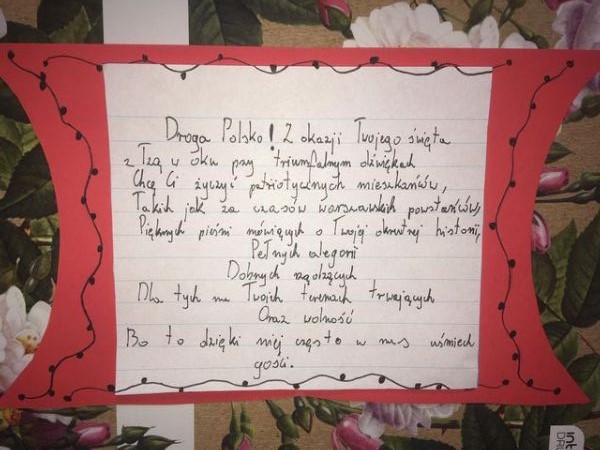 Droga Polsko! Z okazji Twojego święta
z Łzą w oku przy triumfalnym dźwiękach
Chcę Ci życzyć patriotycznych mieszkańców,
Takich jak za czasów warszawskich powstańców,
Pięknych pieśni mówiących o Twojej okrutnej historii,
Pełnych alegorii
Dobrych rządzących
Dla tych na Twoich terenach trwających
Oraz wolność
Bo to dzięki niej często w nas uśmiech
gości.